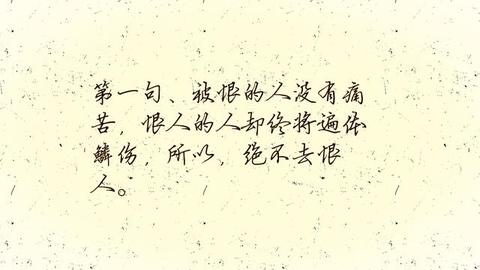 第一句、被恨的人没有痛
苦，恨人的人却终将遍体
鳞伤，所以，绝不去恨
人。